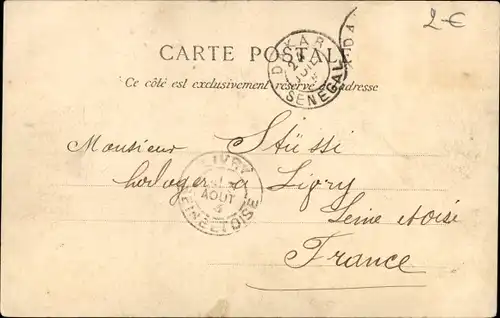 2-€
CARTE POSTALE
Ce côté est exclusivement réservé à l'adresse
DAKAR
JUIL
SENEGAL
DA
Monsieur Stüssi
horloger a Livry
Seine et oise
France
LIVRY
AOUT
SEINE ET OISE